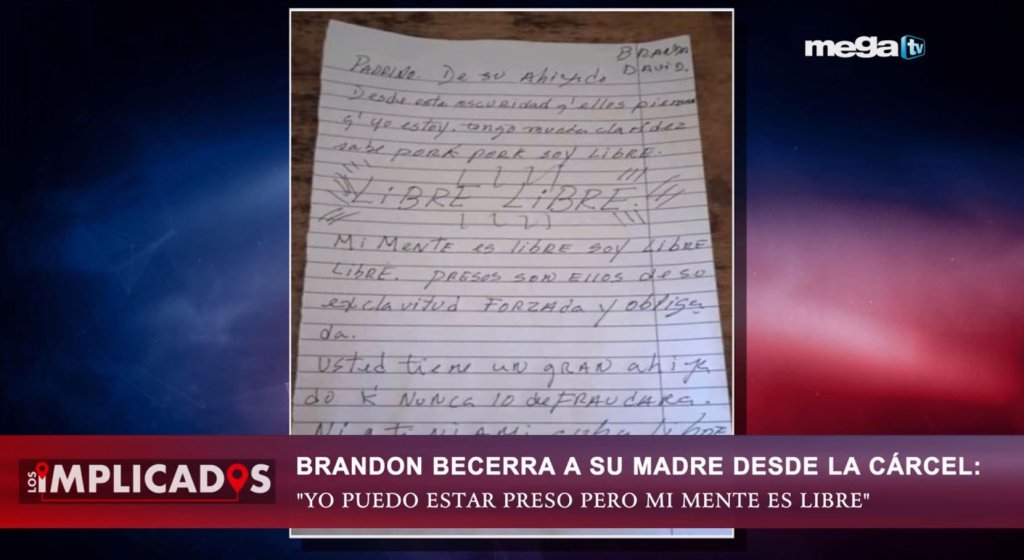 mega tv
BRANDO
DAVID.
PADRINO. De su Ahijado
Desde esta oscuridad q' ellos piensan
q' yo estoy. tengo mucha claridez
sabe PORK PORK SOY LIBRE.
LIBRE LIBRE.
Mi MeNTE es libRE soy LIBRE
LIBRE. PRESOS SON Ellos de su
exclavitud FORZADA y obliga
da.
Usted tiene UN GRAN ahija
do K NUNCA lo deFRAUDARA.
Ni a ti Ni A Mi cuba libRE
LOS
IMPLICADOS
BRANDON BECERRA A SU MADRE DESDE LA CÁRCEL:
"YO PUEDO ESTAR PRESO PERO MI MENTE ES LIBRE"